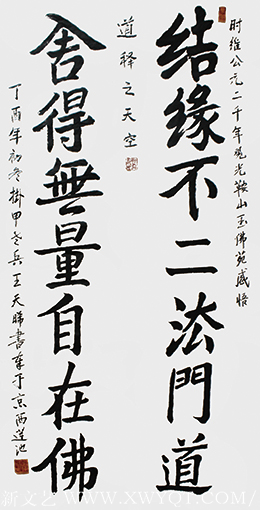 时维公元二千年观光鞍山玉佛苑感悟
结缘不二法門道
道释之天空
舍得無量自在佛
丁酉年初冬掛甲老兵王天勝書奉于京西蓮池
新文艺 WWW.XWYQT.COM/